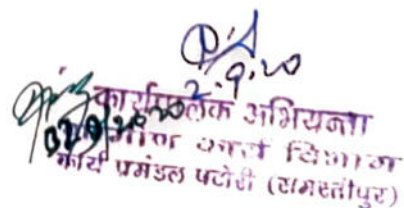 2.9.20
कार्यपालक अभियन्ता
ग्रामीण कार्य विभाग
कार्य प्रमंडल पटोरी (समस्तीपुर)